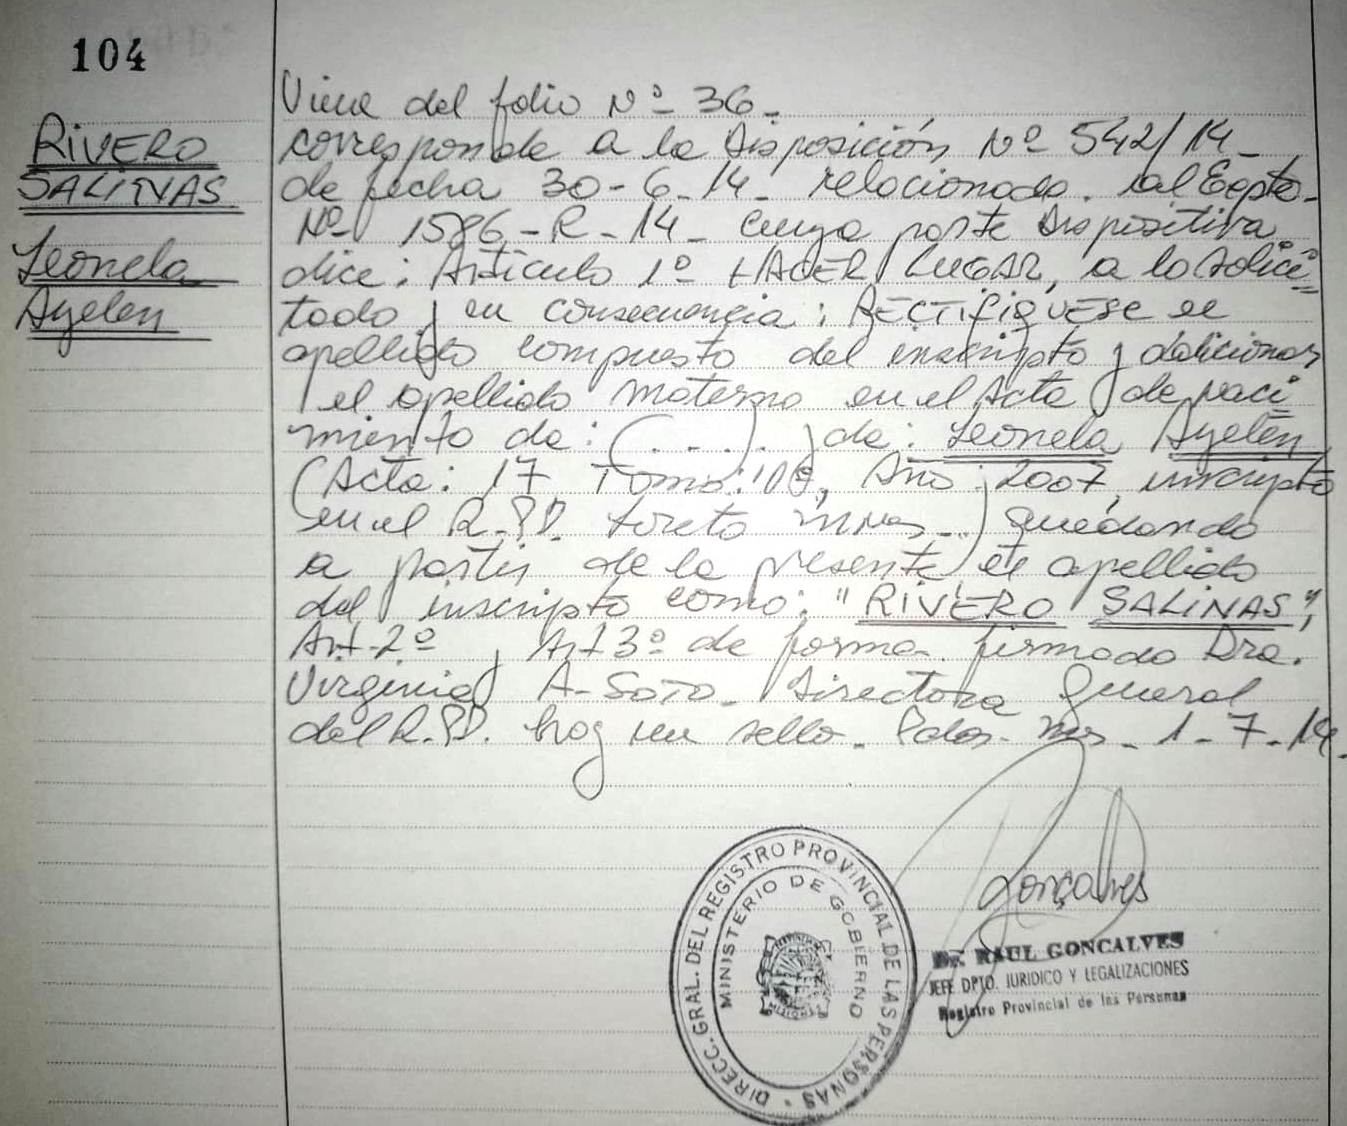 104
RIVERO
SALINAS
Leonela
Ayelen
Viene del folio Nº 36_
corresponde a la Disposición Nº 542/14_
de fecha 30-6-14_ relacionado. al Expte_
Nº 1586-R-14_ cuya parte dispositiva
dice: Artículo 1º HACER LUGAR, a lo Solici
tado y en consecuencia: RECTIFIQUESE el
apellido compuesto del inscripto y adicionar
el apellido materno en el Acta de naci
miento de: (. . . .) de: Leonela Ayelén
(Acta: 17 Tomo: Año: 2007, inscripto
en el R.PP. Loreto Mnes_) quedando
a partir de la presente el apellido
del inscripto como: "RIVERO SALINAS",
Art-2º y Art 3º de forma. firmado Dra.
Virginia A-Soto_ Directora General
del R.PP. hay un sello_ Pdas. Mns_ 1-7-14_
Gonçalves
DIRECC. GRAL. DEL REGISTRO PROVINCIAL DE LAS PERSONAS
MINISTERIO DE GOBIERNO
MISIONES
Dr. RAUL GONCALVES
JEFE DPTO. JURIDICO Y LEGALIZACIONES
Registro Provincial de las Personas